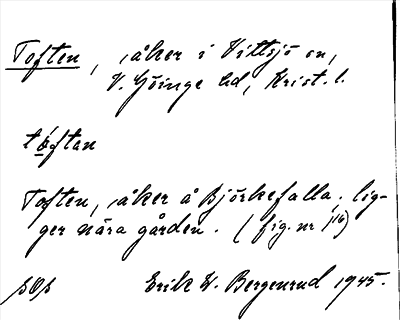 Toften, åker i Vittsjö sn,
V. Göinge hd, Krist. l.
tòftan
Toften, åker å Björkefalla, lig-
ger nära gården. (fig. nr 116)
Erik W. Bergenrud 1945.